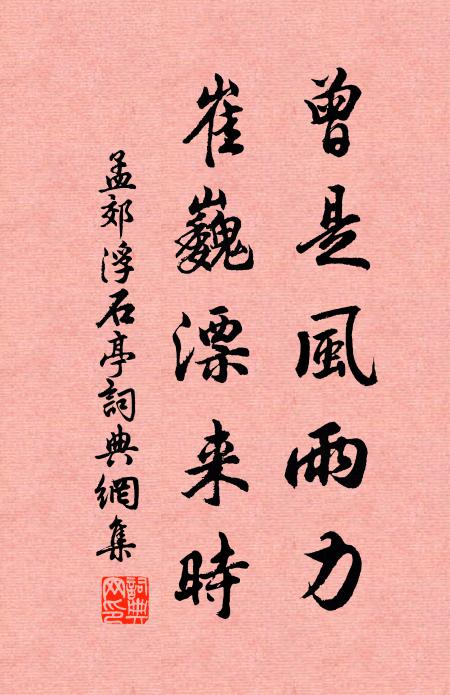 曾是風雨力
崔巍漂来時
孟郊浮石亭詞典網集
詞典
网印